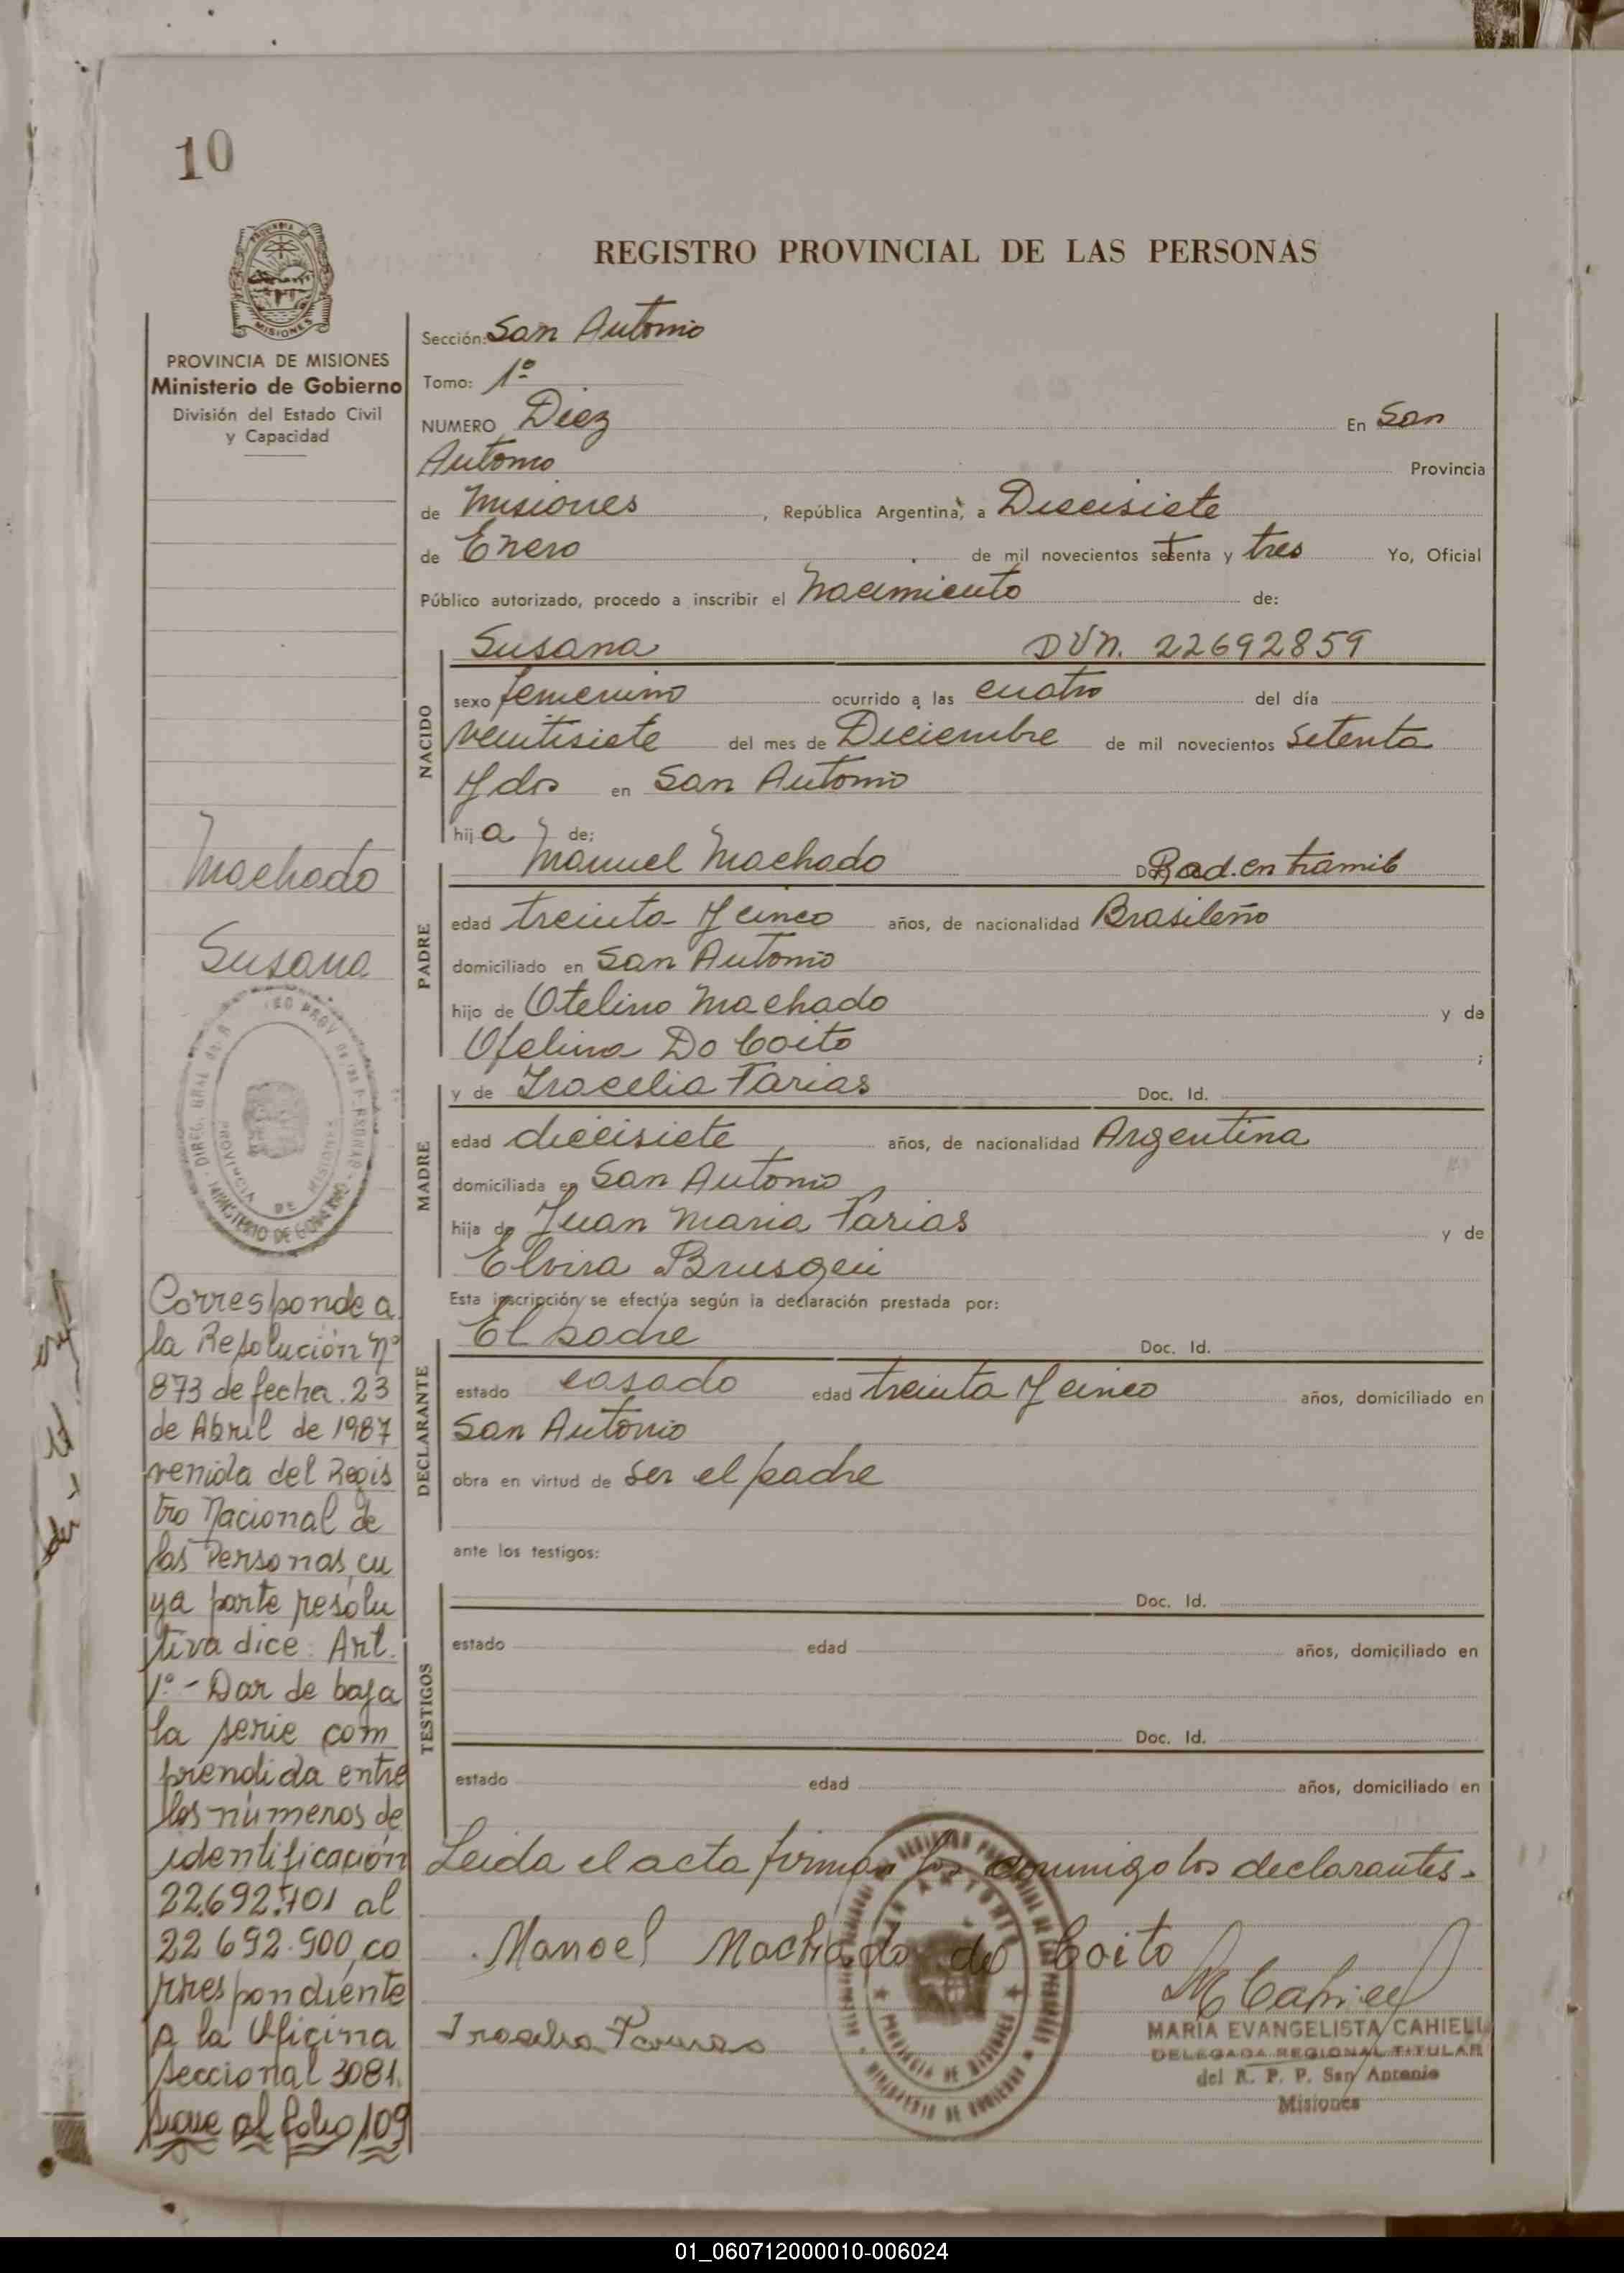 10
REGISTRO PROVINCIAL DE LAS PERSONAS
MISIONES
PROVINCIA DE MISIONES
Ministerio de Gobierno
División del Estado Civil
y Capacidad
Sección: San Antonio
Tomo: 1º
NUMERO Diez En San
Antonio Provincia
de Misiones, República Argentina, a Diecisiete
de Enero de mil novecientos setenta y tres Yo, Oficial
Público autorizado, procedo a inscribir el Nacimiento de:
NACIDO
Susana DUN. 22692859
sexo femenino ocurrido a las cuatro del día
veintisiete del mes de Diciembre de mil novecientos setenta
y dos en San Antonio
hija de:
PADRE
Manuel Machado Rad. en tramite
edad treinta y cinco años, de nacionalidad Brasileño
domiciliado en San Antonio
hijo de Otelino Machado y de
Ofelina Do Coito ;
MADRE
y de Iracelia Farias Doc. Id.
edad diecisiete años, de nacionalidad Argentina
domiciliada en San Antonio
hija de Juan Maria Farias y de
Elvira
Esta inscripción se efectúa según la declaración prestada por:
DECLARANTE
El padre Doc. Id.
estado casado edad treinta y cinco años, domiciliado en
San Antonio
obra en virtud de ser el padre
ante los testigos:
TESTIGOS
Doc. Id.
estado edad años, domiciliado en
Doc. Id.
estado edad años, domiciliado en
Leida el acta firman conmigo los declarantes.
Manoel Machado do Coito
MARIA EVANGELISTA CAHIELL
DELEGADA REGIONAL TITULAR
del R. P. P. San Antonio
Misiones
Machado
Susana
PROVINCIA DE MISIONES
MINISTERIO DE GOBIERNO
Corresponde a
la Resolución Nº
873 de fecha 23
de Abril de 1987
venida del Regis
tro Nacional de
las Personas, cu
ya parte resolu
tiva dice: Art.
1º - Dar de baja
la serie com
prendida entre
los números de
identificación
22.692.701 al
22.692.900, co
rrespondiente
a la Oficina
Seccional 3081.
Sigue al folio 109
01_060712000010-006024